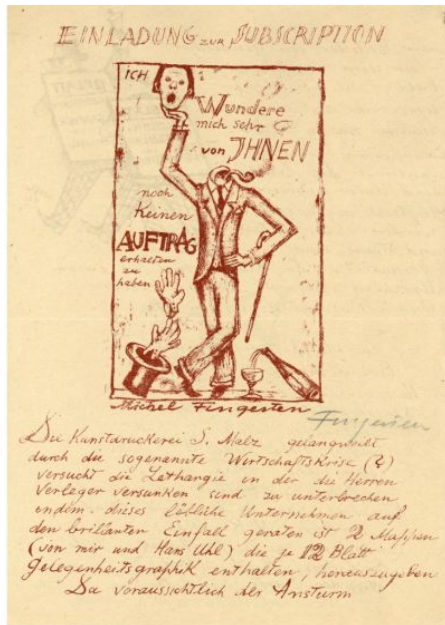 EINLADUNG zur SUBSCRIPTION
ICH
Wundere
mich sehr
von JHNEN
noch
Keinen
AUFTRAG
erhalten
zu
haben
Michel Fingesten
Fingesten
Die Kunstdruckerei S. Malz gelangweilt
durch die sogenannte Wirtschaftskrise (?)
versucht die Lethargie in der die Herren
Verleger versunken sind zu unterbrechen
indem dieses löbliche Unternehmen auf
den brillanten Einfall geraten ist 2 Mappen
(von mir und Hans Uhl) die je 12 Blatt
Gelegenheitsgraphik enthalten, herauszugeben
Da voraussichtlich der Ansturm